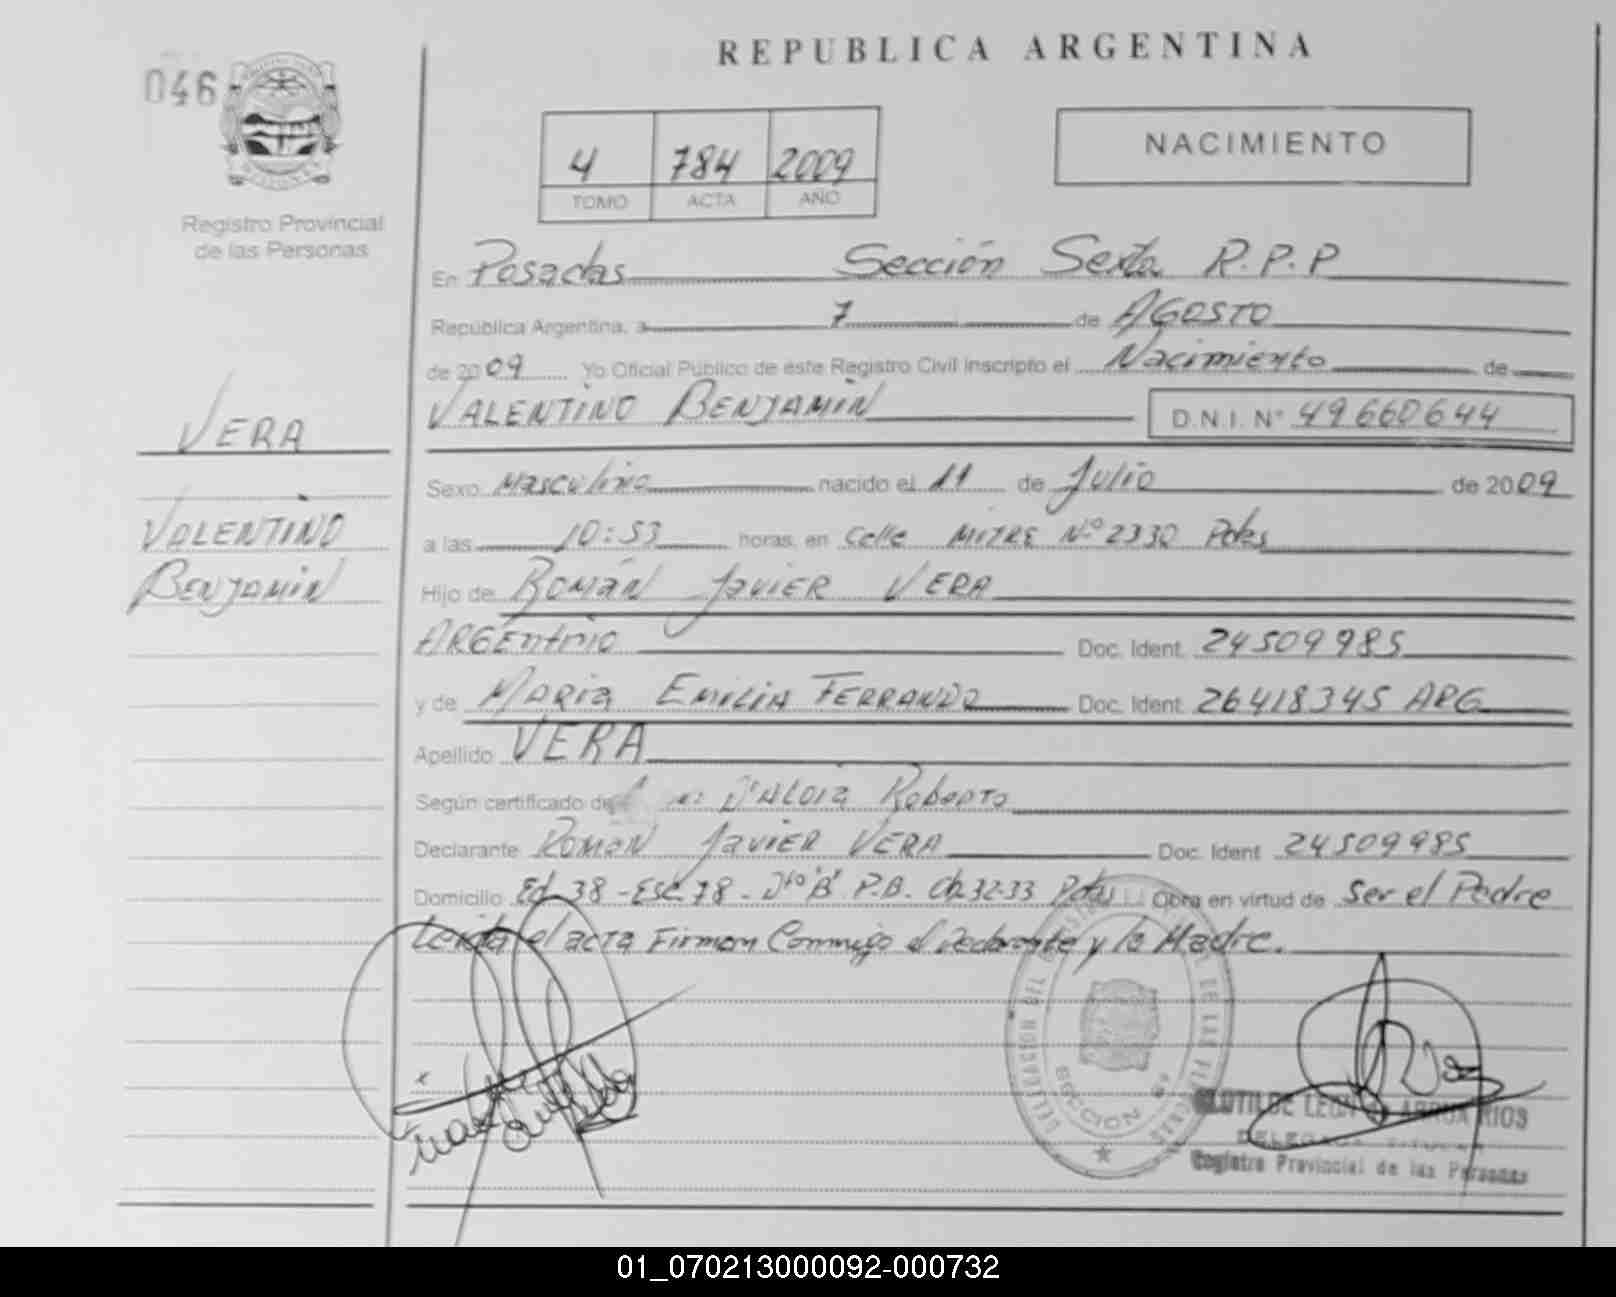 REPUBLICA ARGENTINA
046
NACIMIENTO
4 784 2009
TOMO ACTA AÑO
Registro Provincial
de las Personas
En Posadas Sección Sexta R.P.P
República Argentina, a 7 de AGOSTO
de 2009 Yo Oficial Público de este Registro Civil Inscripto el Nacimiento de
VALENTINO BENJAMIN D.N.I. N° 49660644
VERA
Sexo Masculino nacido el 11 de Julio de 2009
VALENTINO
a las 10:53 horas, en Calle MITRE Nº 2330 Pdas
BENJAMIN
Hijo de ROMÁN Javier VERA
ARGEntino Doc. Ident. 24509985
y de MARIA EMILIA FERRANDO Doc. Ident. 26418345 ARG
Apellido VERA
Según certificado de D'ALOIA Roberto
Declarante ROMAN Javier VERA Doc. Ident 24509985
Domicilio Ed. 38 - Esc. 78 - Dto 'B' P.B. Ch. 32-33 Pdas Obra en virtud de Ser el Padre
Leida el acta Firman Conmigo el Declarante y la Madre.
DELEGACION DEL REGISTRO DE LAS PERSONAS
SECCION 6
CLOTILDE LEON RIOS
DELEGADA TITULAR
Registro Provincial de las Personas
01_070213000092-000732